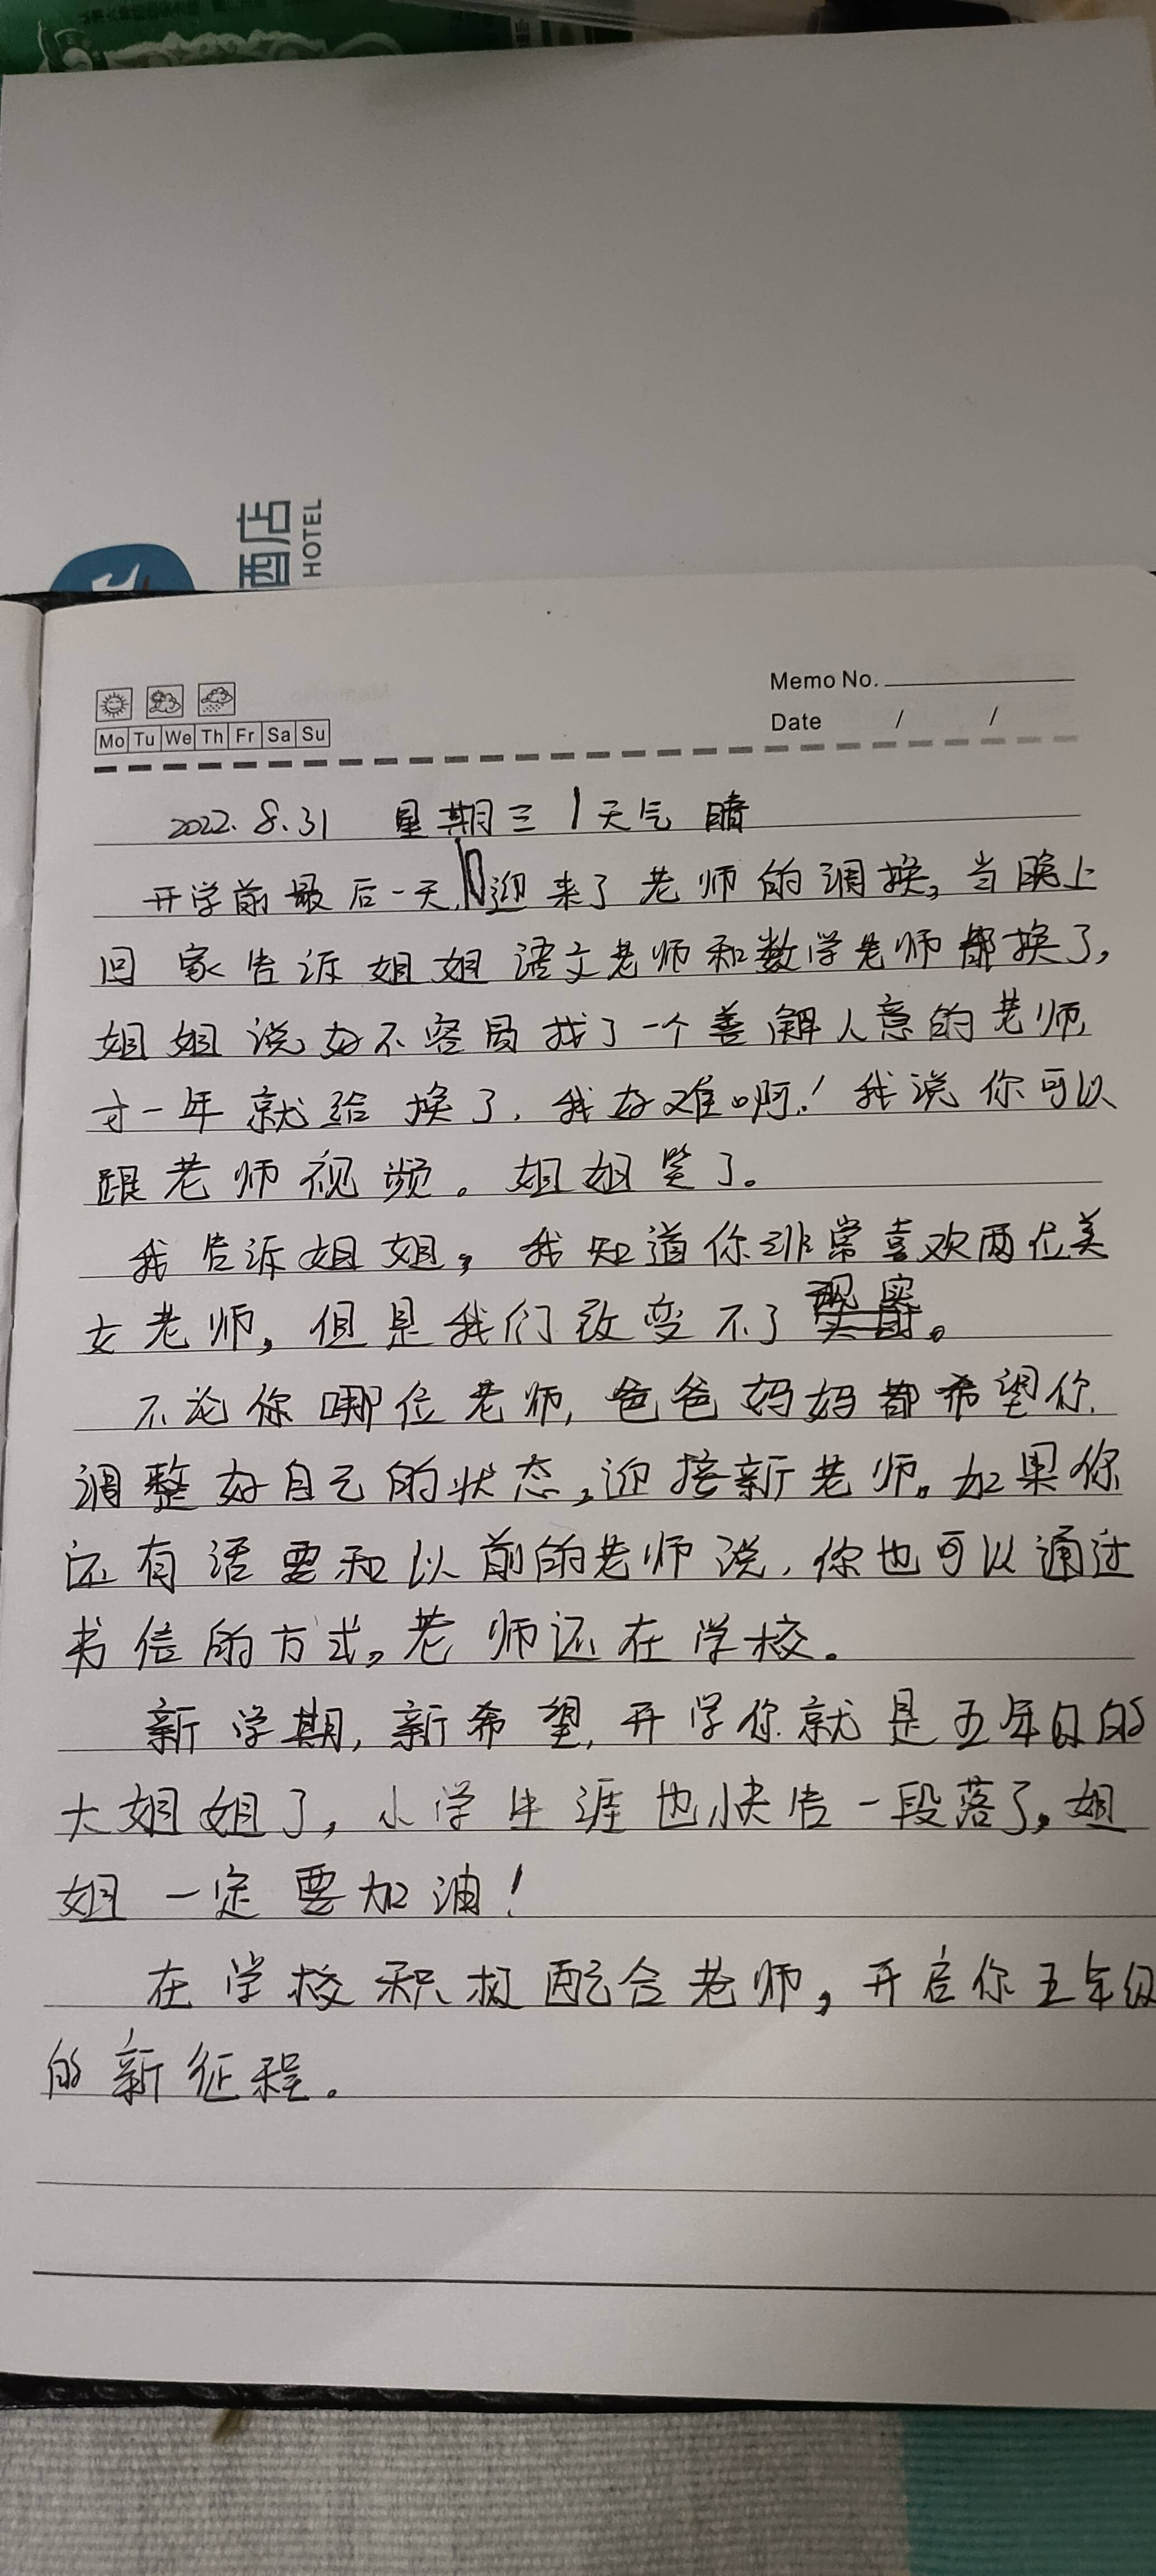 酒店
HOTEL
Memo No.
Mo Tu We Th Fr Sa Su
Date / /
2022.8.31 星期三 天气 晴
开学前最后一天,迎来了老师的调换,当晚上
回家告诉姐姐语文老师和数学老师都换了,
姐姐说好不容易找了一个善解人意的老师,
才一年就给换了,我好难啊!我说你可以
跟老师视频。姐姐笑了。
我告诉姐姐,我知道你非常喜欢两位美
女老师,但是我们改变不了现实。
不论你哪位老师,爸爸妈妈都希望你,
调整好自己的状态,迎接新老师。如果你
还有话要和以前的老师说,你也可以通过
书信的方式,老师还在学校。
新学期,新希望,开学你就是五年的
大姐姐了,小学生涯也快告一段落了,姐
姐一定要加油!
在学校积极配合老师,开启你五年级
的新征程。